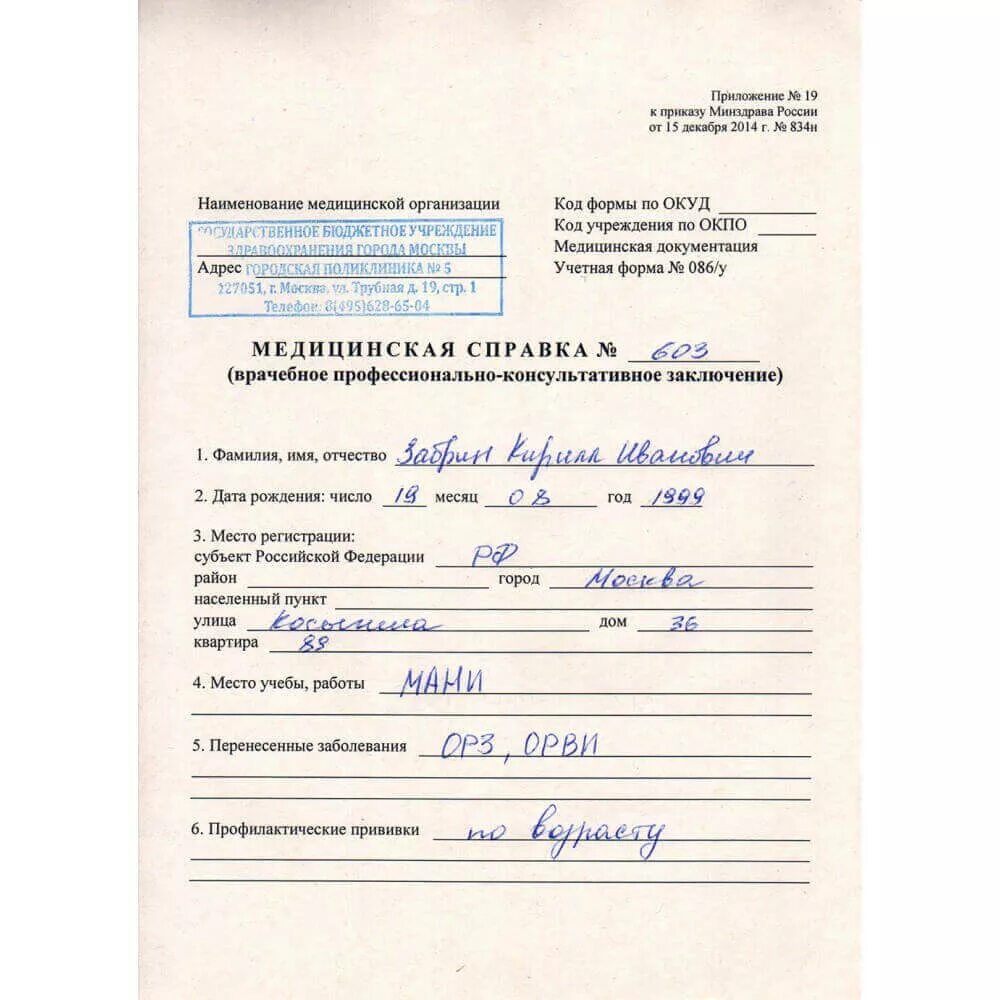 Приложение № 19
к приказу Минздрава России
от 15 декабря 2014 г. № 834н
Наименование медицинской организации
Код формы по ОКУД
Код учреждения по ОКПО
Медицинская документация
Учетная форма № 086/у
ГОСУДАРСТВЕННОЕ БЮДЖЕТНОЕ УЧРЕЖДЕНИЕ
ЗДРАВООХРАНЕНИЯ ГОРОДА МОСКВЫ
Адрес ГОРОДСКАЯ ПОЛИКЛИНИКА № 5
127051, г. Москва, ул. Трубная д. 19, стр. 1
Телефон: 8(495)628-65-04
МЕДИЦИНСКАЯ СПРАВКА № 603
(врачебное профессионально-консультативное заключение)
1. Фамилия, имя, отчество Забрин Кирилл Иванович
2. Дата рождения: число 19 месяц 08 год 1999
3. Место регистрации:
субъект Российской Федерации РФ
район город Москва
населенный пункт
улица Косыгина дом 36
квартира 89
4. Место учебы, работы МАНИ
5. Перенесенные заболевания ОРЗ, ОРВИ
6. Профилактические прививки по возрасту